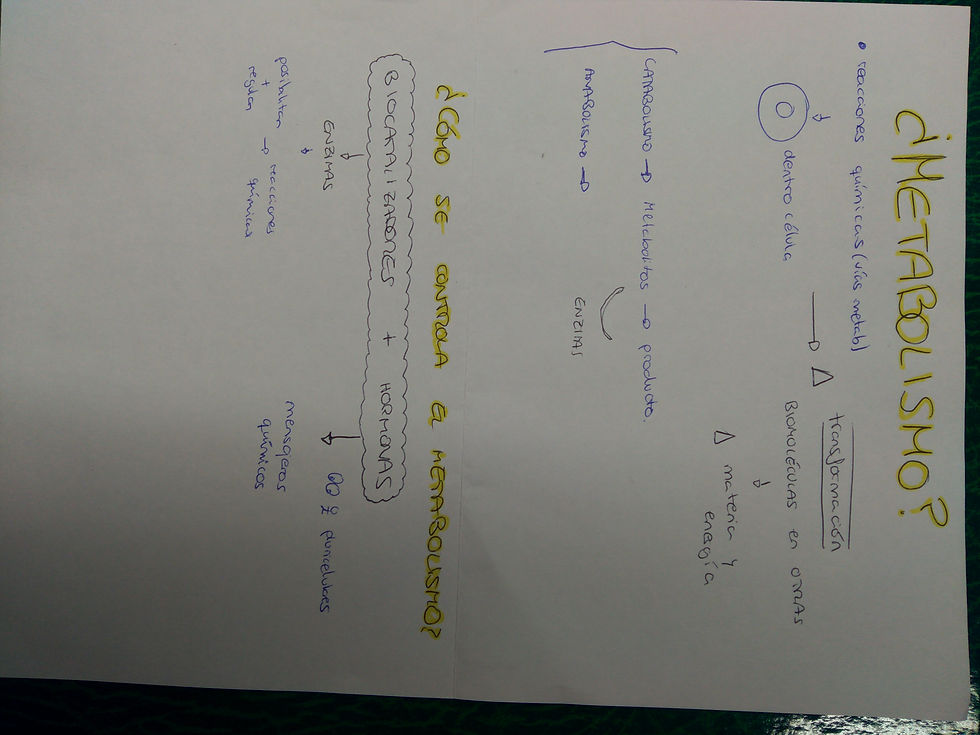 ¿METABOLISMO?
• reacciones químicas (vías metab)
dentro célula → Δ transformación
BIOMOLÉCULAS en OTRAS
Δ materia y energía
CATABOLISMO → Metabolitos → producto.
ENZIMAS
ANABOLISMO →
¿CÓMO SE CONTROLA EL METABOLISMO?
BIOCATALIZADORES + HORMONAS
ENZIMAS
posibilitan + regulan → reacciones químicas
pluricelulares
mensajeros químicos